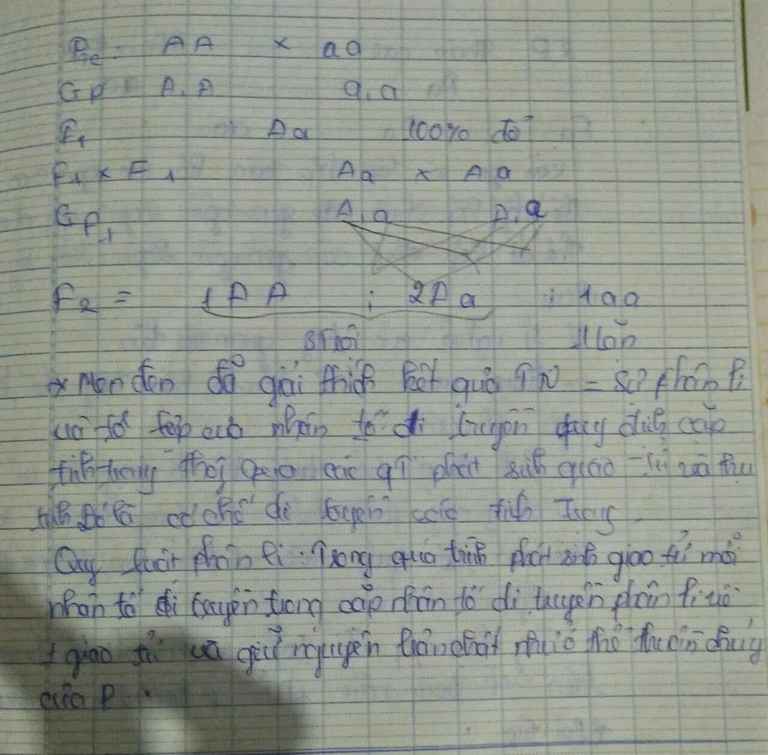 Ptc: AA × aa
Gp A, A a, a
F1 Aa 100% đỏ
F1 × F1 Aa × Aa
GF1 A, a A, a
F2 = 1AA : 2Aa : 1aa
3 trội 1 lặn
* Menđen đã giải thích kết quả TN = sự phân li
và tổ hợp của nhân tố di truyền quy định cặp
tính trạng thông qua các qt phát sinh giao tử và thụ
tinh đó là cơ chế di truyền các tính trạng.
Quy luật phân li: Trong quá trình phát sinh giao tử mỗi
nhân tố di truyền trong cặp nhân tố di truyền phân li về
1 giao tử và giữ nguyên bản chất như ở thể thuần chủng
của P.